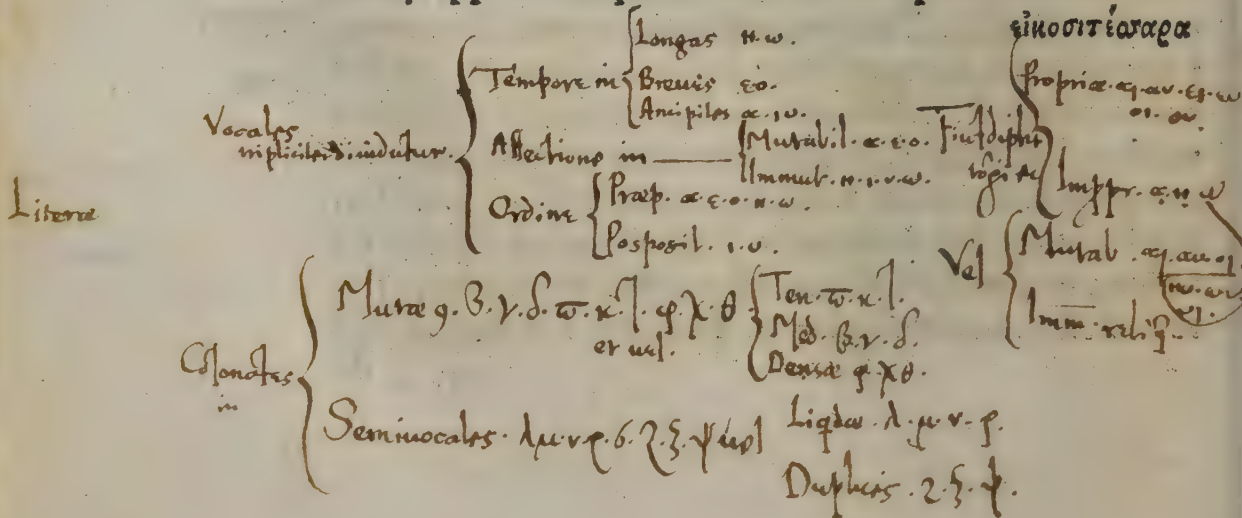 εἰκοσιτέσσαρα
Literæ
Vocales
tripliciter diuidutur.
Tempore in
Longas η.ω.
Breues ε.ο.
Ancipites α.ι.υ.
Affectione in
Mutabil. α.ε.ο.
Immut. η.ι.υ.ω.
Ordine
Præp. α.ε.ο.η.ω.
Posposit. ι.υ.
Propriæ. αι.αυ.ει.ευ
οι.ου.
Imppr. ᾳ.ῃ.ῳ
Vel
Mutab. αι.αυ.οι.
Imm. reliq̄.
Cōsonātes
in
Mutæ 9. β.γ.δ.π.κ.τ.φ.χ.θ.
et uel.
Ten. π.κ.τ.
Med. β.γ.δ.
Densæ φ.χ.θ.
Semiuocales. λ.μ.ν.ρ.σ.ζ.ξ.ψ uel
Liqdæ. λ.μ.ν.ρ.
Duplices. ζ.ξ.ψ.